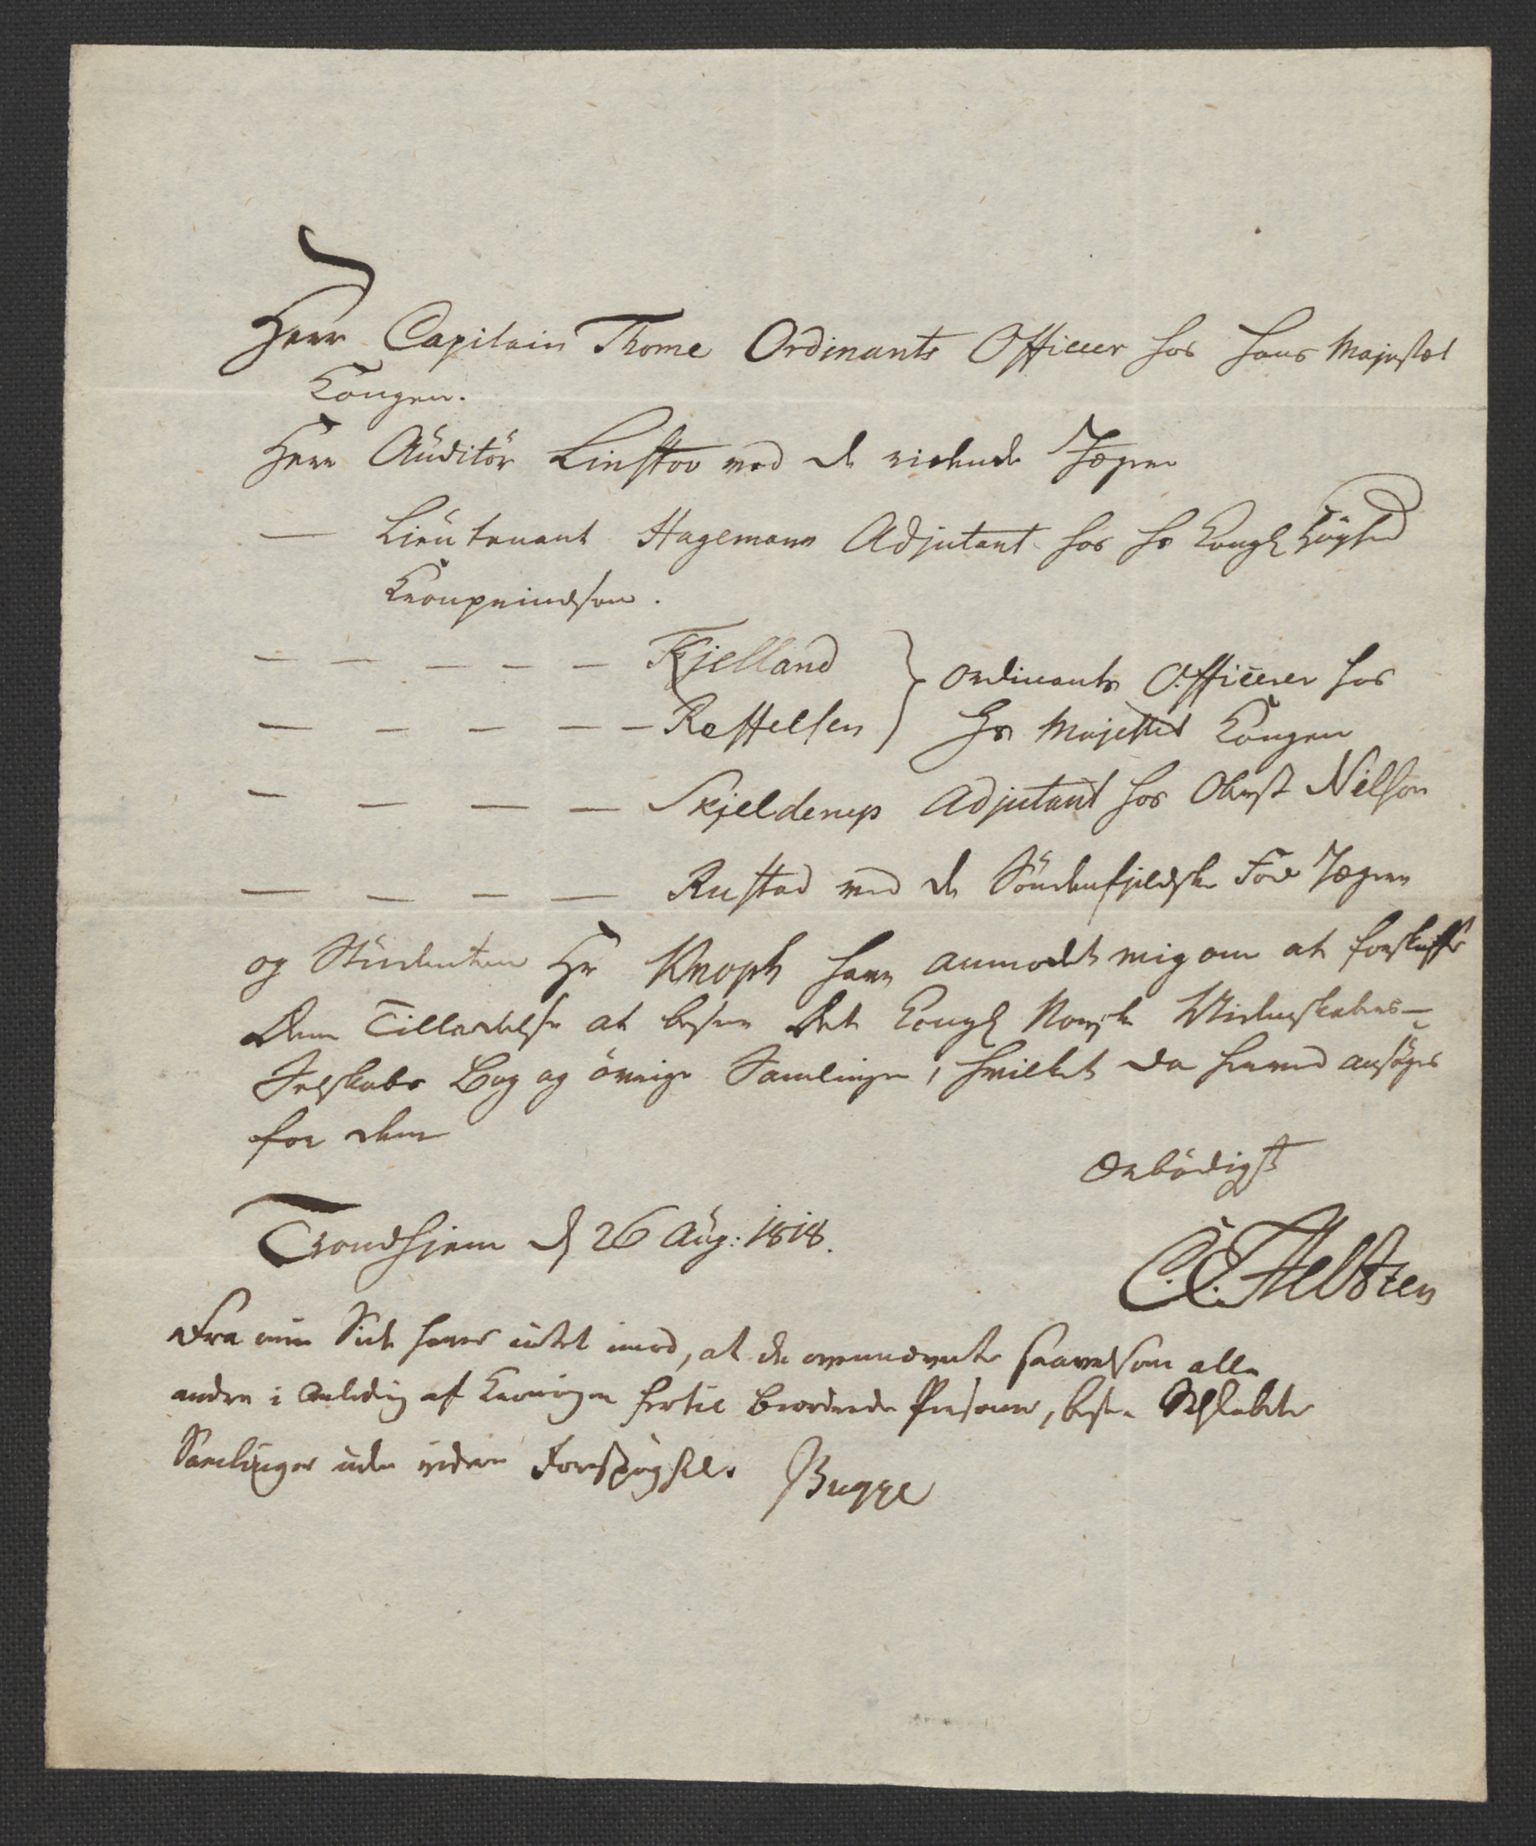 Herr Capitain Thome Ordinants Officeer hos Hans Majestæt
Kongen.
Herr Auditör Linstov ved de ridende Jægere
— Lieutenant Hagemann Adjutant hos Hs Kongl Höyhed
Kronprindsen.
— — — — — Kjelland } Ordinants Officerer hos
— — — — — Roffelsen } Hs Majestet Kongen
— — — — Skjelderup Adjutant hos Oberst Nelson
— — — — Rustad ved de Söndenfjeldske Jægere
og Studenten Hr Knoph have anmodet mig om at forskaffe
Dem Tilladelse at besee Det Kongl Norske Videnskabers-
Selskabs Bog og övrige Samlinger, hvilket da herved ansöges
for dem
Ærbödigst
Trondhjem d 26 Aug: 1818.
C. C. Helstzen
Fra min Side haves intet imod, at de ovennævnte saavelsom alle
andre i Anledning af Kroningen hertil beordrede Personer, besee Selskabets
Samlinger uden videre Forespörgsel. Bugge